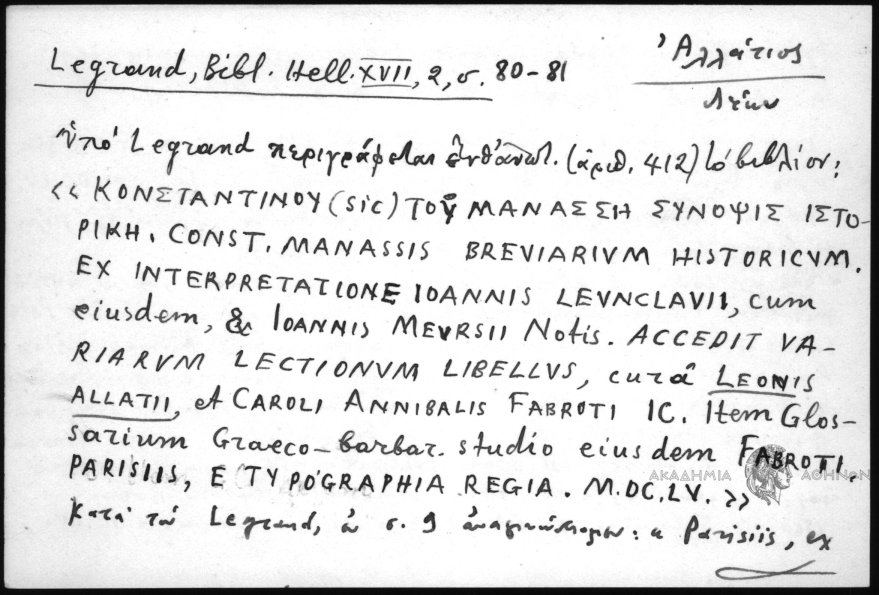 Legrand, Bibl. Hell. XVII, 2, σ. 80-81
Ἀλλάτιος
Λέων
ὑπό Legrand περιγράφεται (ἀριθ. 412) τό βιβλίον:
<< ΚΩΝΣΤΑΝΤΙΝΟΥ (sic) ΤΟΥ ΜΑΝΑΣΣΗ ΣΥΝΟΨΙΣ ΙΣΤΟ-
ΡΙΚΗ. CONST. MANASSIS BREVIARIVM HISTORICVM.
EX INTERPRETATIONE IOANNIS LEVNCLAVII, cum
eiusdem, & IOANNIS MEVRSII Notis. ACCEDIT VA-
RIARVM LECTIONVM LIBELLVS, curâ LEONIS
ALLATII, et CAROLI ANNIBALIS FABROTI IC. Item Glos-
sarium Graeco-barbar. studio eiusdem FABROTI.
PARISIIS, E TYPOGRAPHIA REGIA. M.DC.LV. >>
Κατά τόν Legrand, ἐν σ. 9 ἀναγινώσκομεν: « Parisiis, ex
ΑΚΑΔΗΜΙΑ ΑΘΗΝΩΝ